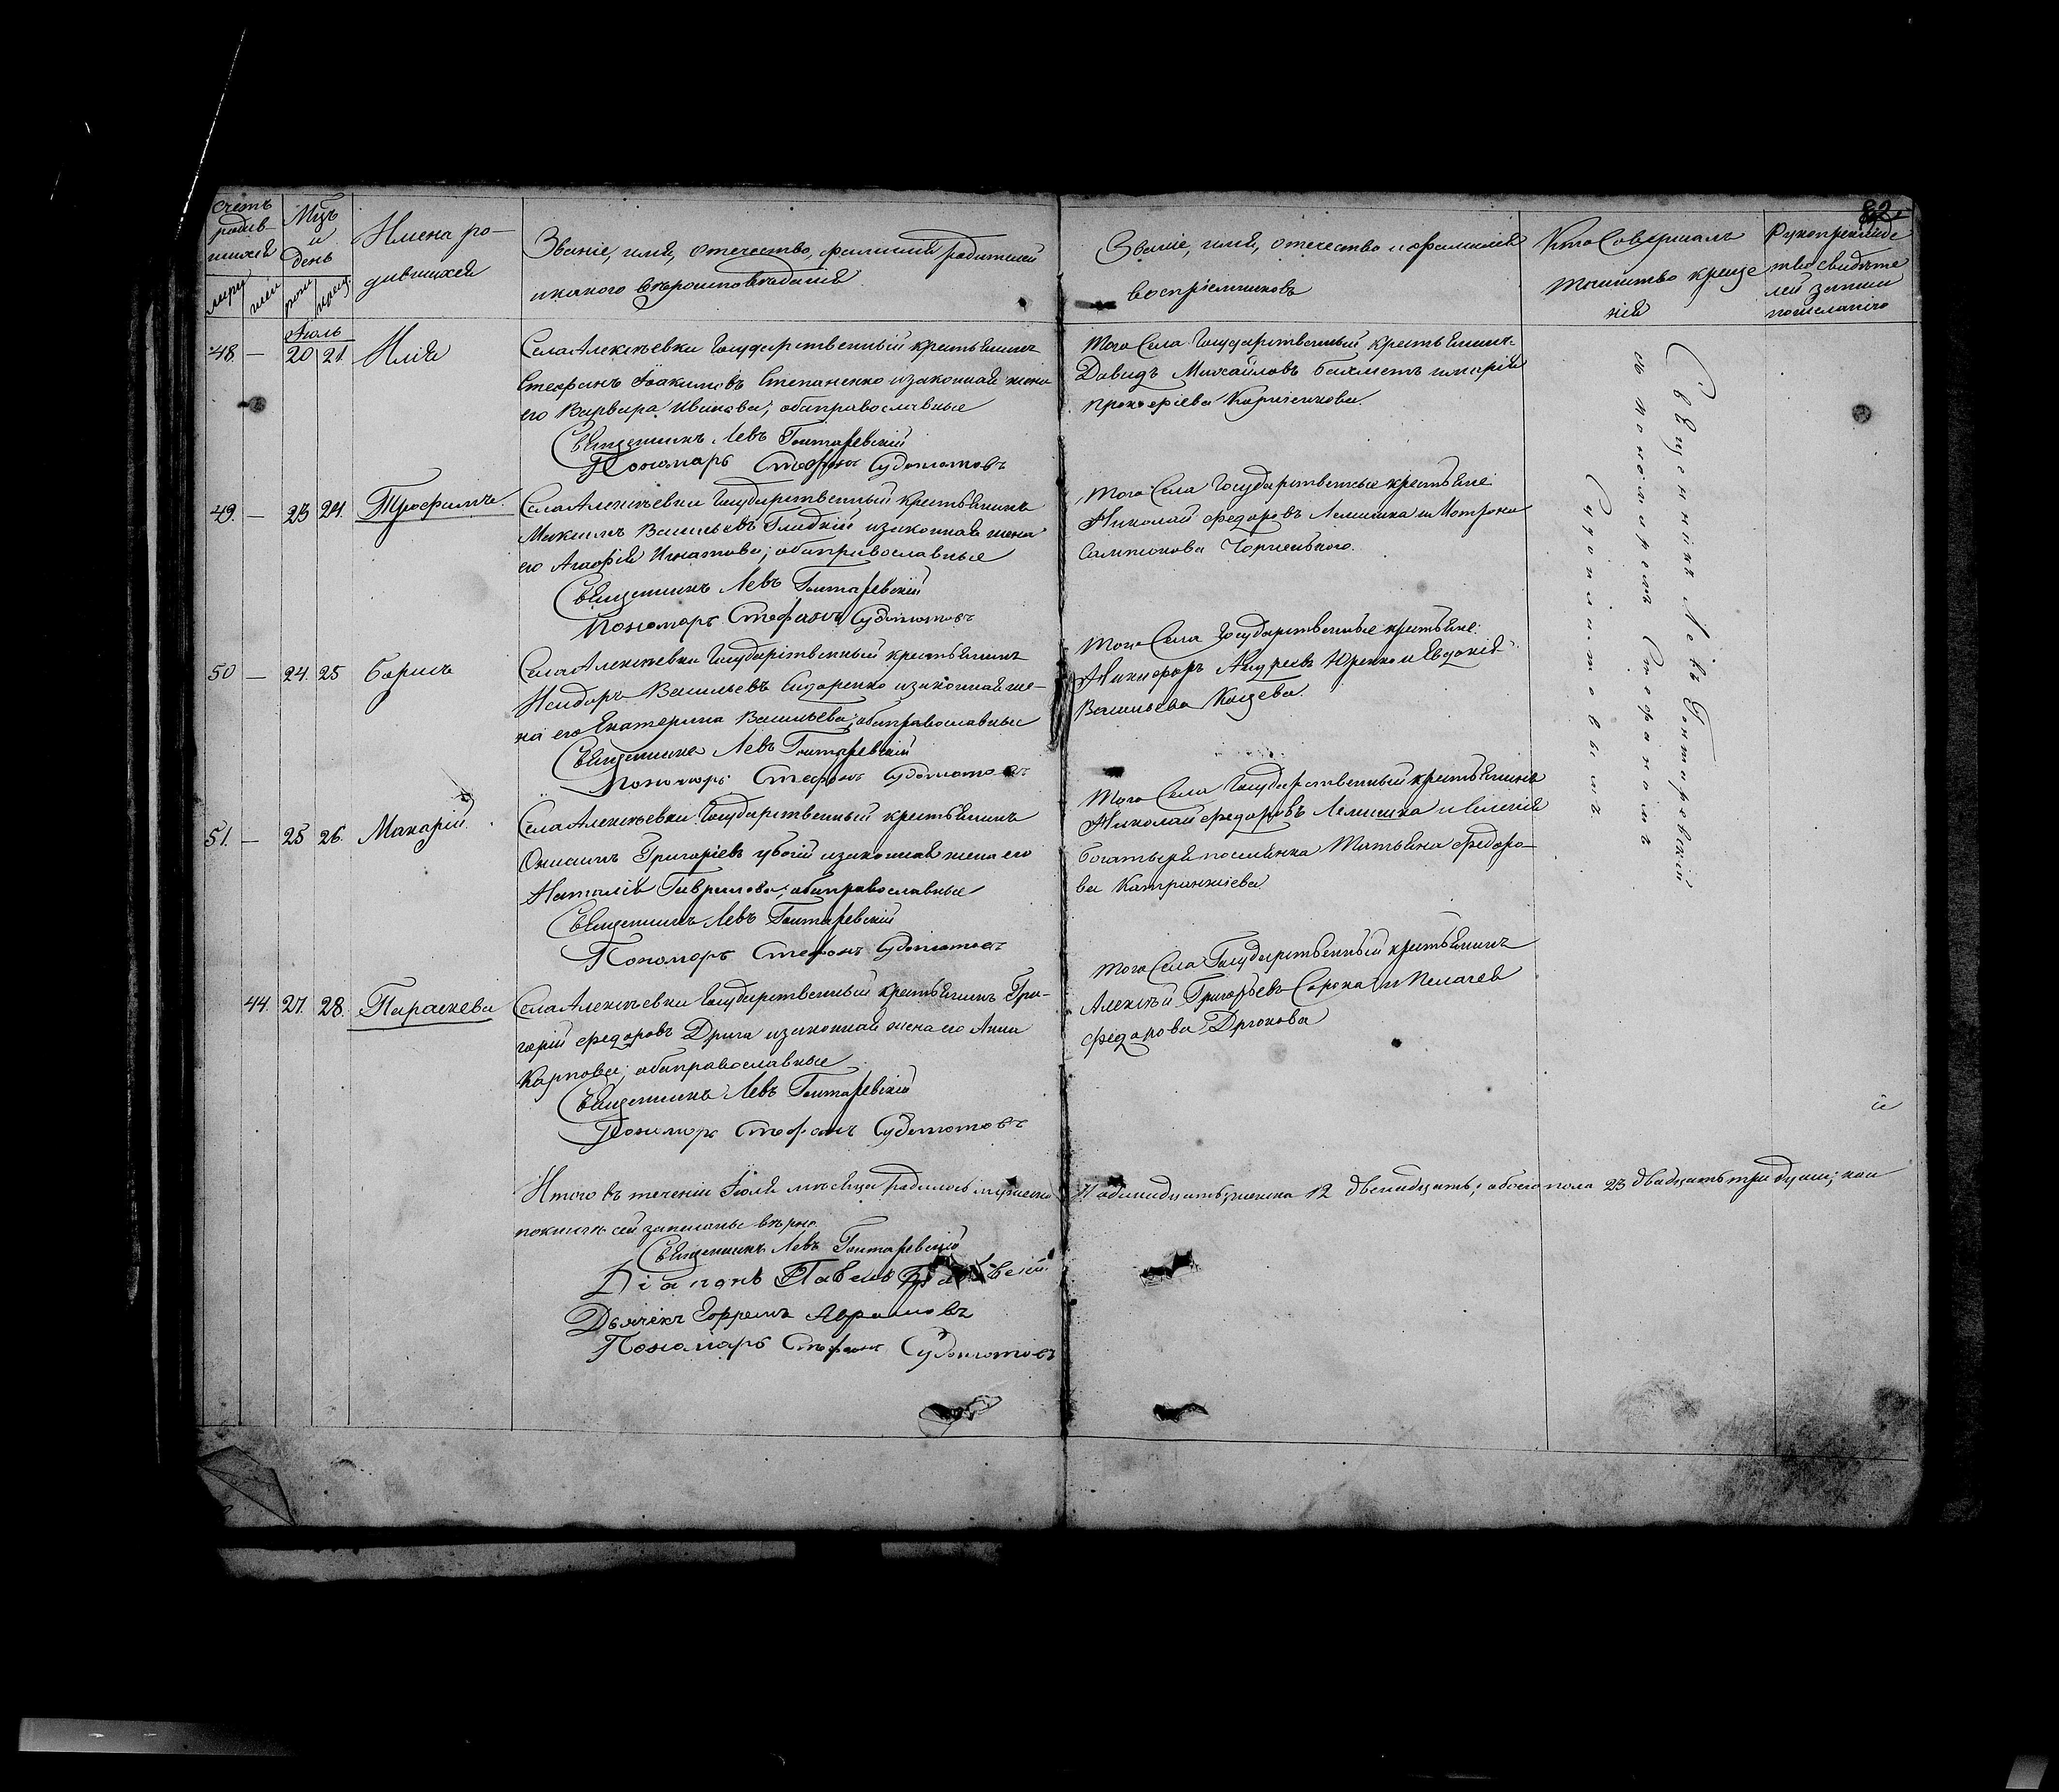 82.
Счетъ родив-шихся
Мцъ и день
Имена ро-
дившихся
Званіе, имя, отечество, фамилія родителей
и какого вѣроисповѣданія
Званіе, имя, отечество и фамилія
воспріемниковъ
Кто Совершалъ
таинство креще
нія
Рукоприкладс
тво свидѣте
лей записи
по желанію
Іюль
48. — 20 21 Илія
Села Алексѣевки Государственный крестьянинъ
Стефанъ Іоакимовъ Степаненко и законная жена
его Варвара Иванова; оба православные
Священникъ Левъ Гонтаревскій
Пономарь Стефанъ
Того Села Государственный крестьянинъ
Давидъ Михайловъ и Марія
Прокофіева
49. — 23 24. Трофимъ
Села Алексѣевки Государственный крестьянинъ
Васильевъ Гладкій и законная жена
его Агафія Игнатова; оба православные
Священникъ Левъ Гонтаревскій
Пономарь Стефанъ
Того Села Государственные крестьяне:
Николай Федоровъ Лемишка и Матрона
Сампсонова
50 — 24. 25 Борисъ
Села Алексѣевки Государственный крестьянинъ
Исидоръ Васильевъ Сидоренко и законная же-
на его Екатерина Васильева; оба православные
Священникъ Левъ Гонтаревскій
Пономарь Стефанъ
Того Села Государственные крестьяне:
Никифоръ Андреевъ Юренко и Евдокія
Васильева
51. — 25 26. Макарій.
Села Алексѣевки Государственный крестьянинъ
Григоріевъ Убогій и законная жена его
Наталія Гаврилова; оба православные
Священникъ Левъ Гонтаревскій
Пономарь Стефанъ
Того Села Государственный крестьянинъ
Николай Федоровъ Лемишка и Селенія
поселянка Татьяна Федоро-
ва
44. 27. 28. Параскева
Села Алексѣевки Государственный крестьянинъ Гри-
горій Федоровъ Дрига и законная жена его Анна
Карпова; оба православные
Священникъ Левъ Гонтаревскій
Пономарь Стефанъ
Того Села Государственный крестьянинъ
Алексѣй Григорьевъ Сорока и Пелагея
Федорова
Священникъ Левъ Гонтаревскій
съ пономаремъ Стефаномъ
Итого въ теченіи Іюля мѣсяца родилось мужеска 11 одинадцать, женска 12 двенадцать; обоего пола 23 двадцать три души; кои
по книгѣ сей записаны вѣрно
Священникъ Левъ Гонтаревскій
Діаконъ Павелъ
Дьячекъ Ефремъ Абрамовъ
Пономарь Стефанъ